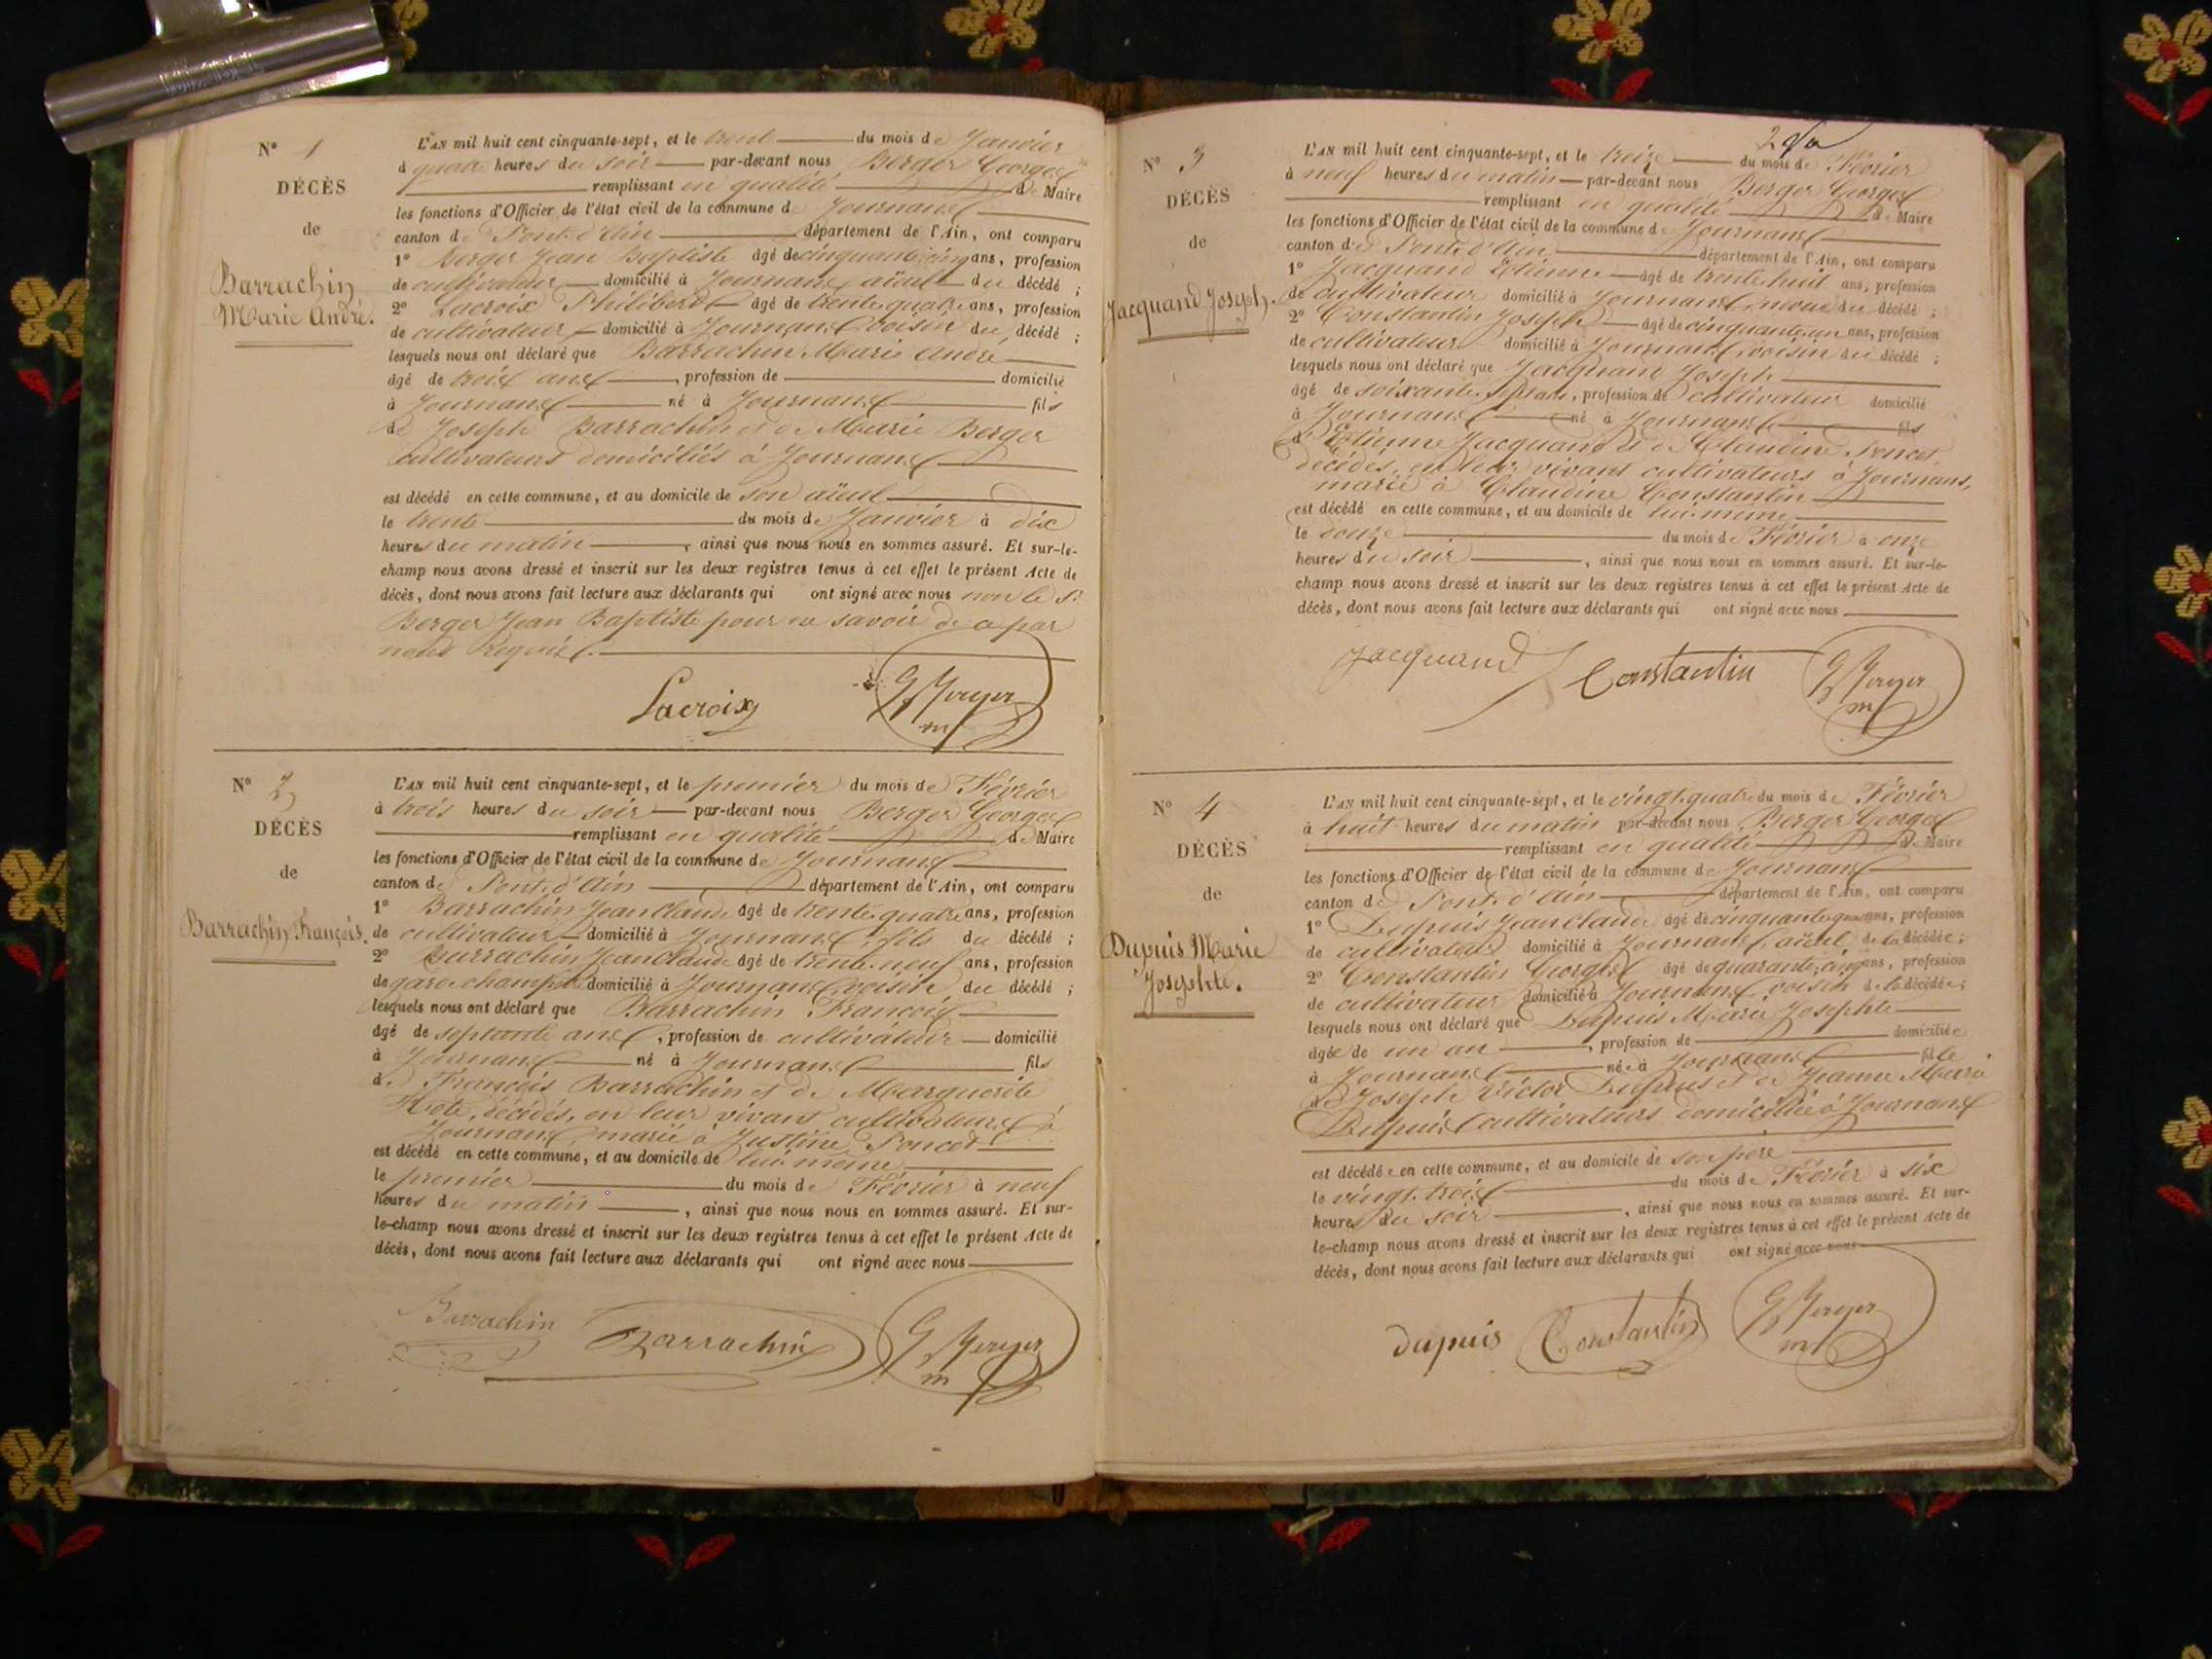 N° 1
DÉCÈS
de
Barrachin
Marie André.
L'AN mil huit cent cinquante-sept, et le trent du mois de Janvier
à quatre heures du soir par-devant nous Berger Georges
remplissant en qualité de Maire
les fonctions d'Officier de l'état civil de la commune de Journans
canton de Pont-d'Ain département de l'Ain, ont comparu
1° Berger Jean Baptiste âgé de cinquante cinq ans, profession
de cultivateur domicilié à Journans aïeul du décédé ;
2° Lacroix Philibert âgé de trente quatre ans, profession
de cultivateur domicilié à Journans voisin du décédé ;
lesquels nous ont déclaré que Barrachin Marie André
âgé de trois ans, profession de domicilié
à Journans né à Journans fils
de Joseph Barrachin et de Marie Berger
cultivateurs domiciliés à Journans
est décédé en cette commune, et au domicile de son aïeul
le trente du mois de Janvier à dix
heures du matin, ainsi que nous nous en sommes assuré. Et sur-le-
champ nous avons dressé et inscrit sur les deux registres tenus à cet effet le présent Acte de
décès, dont nous avons fait lecture aux déclarants qui ont signé avec nous non le Sr
Berger Jean Baptiste pour ne savoir de ce par
nous requis.
Lacroix G Berger
m
N° 2
DÉCÈS
de
Barrachin François.
L'AN mil huit cent cinquante-sept, et le premier du mois de Février
à trois heures du soir par-devant nous Berger Georges
remplissant en qualité de Maire
les fonctions d'Officier de l'état civil de la commune de Journans
canton de Pont-d'Ain département de l'Ain, ont comparu
1° Barrachin Jean Claude âgé de trente quatre ans, profession
de cultivateur domicilié à Journans, fils du décédé ;
2° Barrachin Jean Claude âgé de trente-neuf ans, profession
de garde champêtre domicilié à Journans voisin du décédé ;
lesquels nous ont déclaré que Barrachin François
âgé de septante ans, profession de cultivateur domicilié
à Journans né à Journans fils
de François Barrachin et de Marguerite
décédés, en leur vivant cultivateurs à
Journans, marié à Justine Poncet
est décédé en cette commune, et au domicile de lui-même
le premier du mois de Février à neuf
heures du matin, ainsi que nous nous en sommes assuré. Et sur-
le-champ nous avons dressé et inscrit sur les deux registres tenus à cet effet le présent Acte de
décès, dont nous avons fait lecture aux déclarants qui ont signé avec nous
Barrachin Barrachin G Berger
m
N° 3
DÉCÈS
de
Jacquand Joseph.
L'AN mil huit cent cinquante-sept, et le treize du mois de Février
à neuf heures du matin par-devant nous Berger Georges
remplissant en qualité de Maire
les fonctions d'Officier de l'état civil de la commune de Journans
canton de Pont-d'Ain département de l'Ain, ont comparu
1° Jacquand Etienne âgé de trente huit ans, profession
de cultivateur domicilié à Journans, neveu du décédé ;
2° Constantin Joseph âgé de cinquante un ans, profession
de cultivateur domicilié à Journans, voisin du décédé ;
lesquels nous ont déclaré que Jacquand Joseph
âgé de soixante-sept ans, profession de cultivateur domicilié
à Journans né à Journans fils
d'Etienne Jacquand et de Claudine Poncet
décédés, en leur vivant cultivateurs à Journans,
marié à Claudine Constantin
est décédé en cette commune, et au domicile de lui-même
le douze du mois de Février à onze
heures du soir, ainsi que nous nous en sommes assuré. Et sur-le-
champ nous avons dressé et inscrit sur les deux registres tenus à cet effet le présent Acte de
décès, dont nous avons fait lecture aux déclarants qui ont signé avec nous
Jacquand J Constantin G Berger
m
N° 4
DÉCÈS
de
Dupuis Marie
Josephte.
L'AN mil huit cent cinquante-sept, et le vingt-quatre du mois de Février
à huit heures du matin par-devant nous Berger Georges
remplissant en qualité de Maire
les fonctions d'Officier de l'état civil de la commune de Journans
canton de Pont-d'Ain département de l'Ain, ont comparu
1° Dupuis Jean Claude âgé de cinquante ans, profession
de cultivateur domicilié à Journans, aïeul de la décédée ;
2° Constantin Georges âgé de quarante-cinq ans, profession
de cultivateur domicilié à Journans voisin de la décédée ;
lesquels nous ont déclaré que Dupuis Marie Josephte
âgée de un an, profession de domiciliée
à Journans née à Journans fille
de Joseph Victor Dupuis et de Jeanne Marie
Dupuis cultivateurs domiciliés à Journans
est décédée en cette commune, et au domicile de son père
le vingt-trois du mois de Février à six
heures du soir, ainsi que nous nous en sommes assuré. Et sur-
le-champ nous avons dressé et inscrit sur les deux registres tenus à cet effet le présent Acte de
décès, dont nous avons fait lecture aux déclarants qui ont signé avec nous
dupuis Constantin G Berger
m